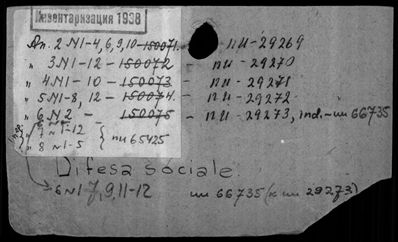 Инвентаризация 1938
Оп. 2 №1-4, 6, 9, 10 - 150071. - пи-29269
" 3 №1-12 - 150072 - пи-29270
" 4 №1-10 - 150073 - пи-29271
" 5 №1-8, 12 - 150074. - пи-29272
" 6 №2 - 150075 - пи-29273, ind.-ии 66735
" 7 №1-12
" 8 №1-5 } пи 65425
Difesa sociale.
6 №1-7, 9, 11-12 ии 66735 (к ии 29273)